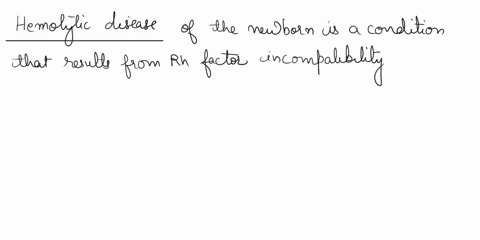 Hemolytic disease of the newborn is a condition
that results from Rh factor incompatibility